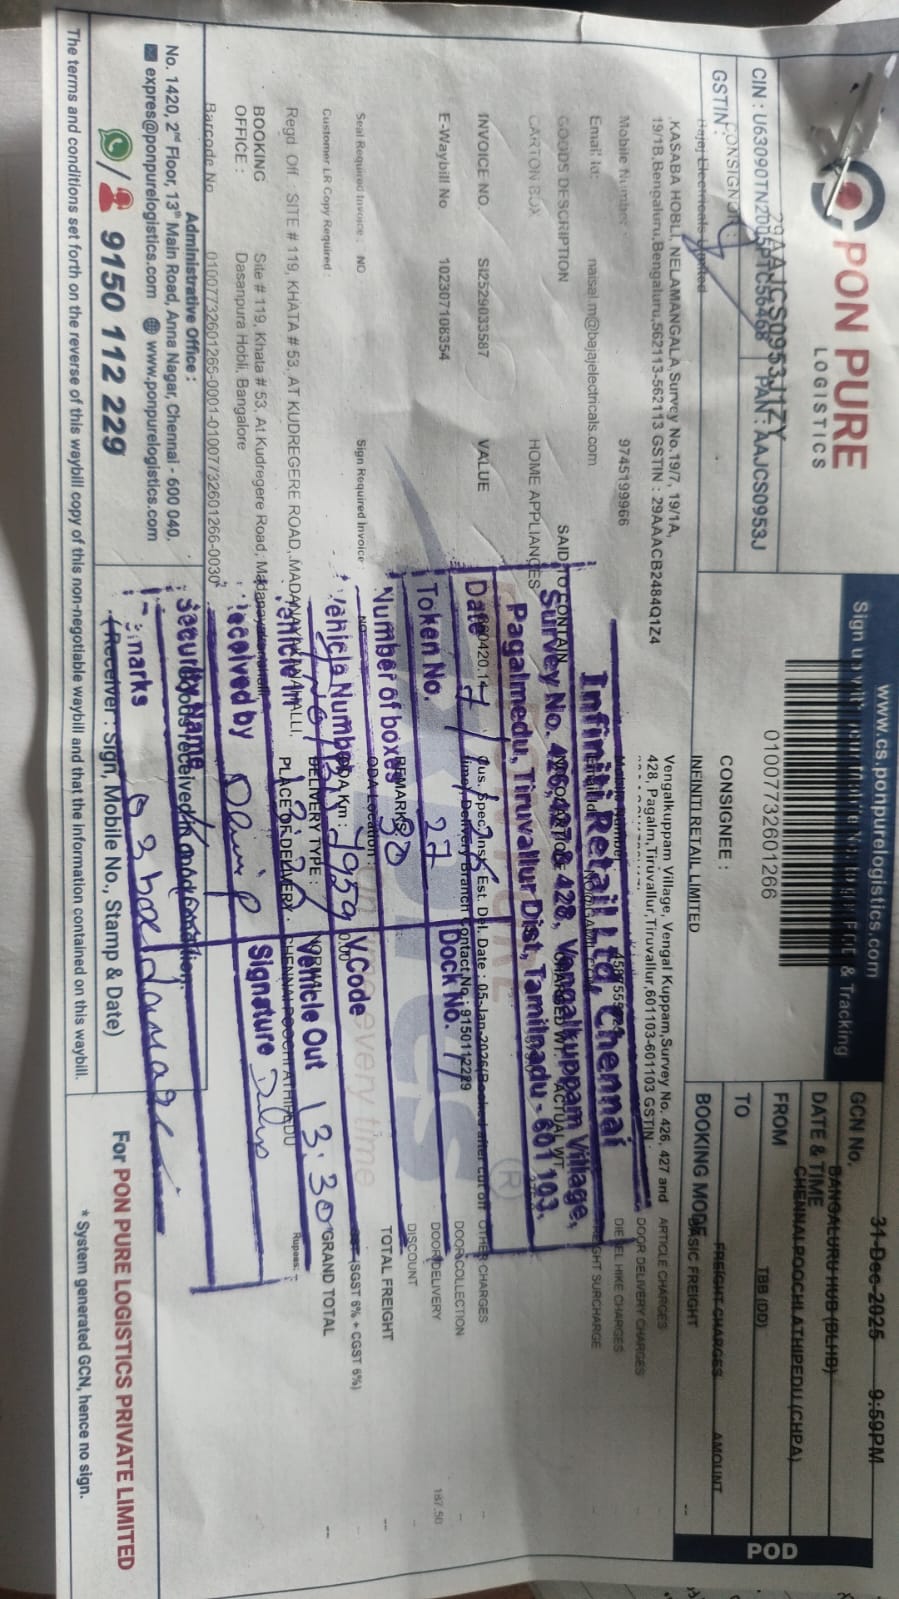 PON PURE
LOGISTICS
CIN : U63090TN2005PTC56468 PAN : AAJCS0953J
GSTIN : 29AAJCS0953J1ZY
www.cs.ponpurelogistics.com
& Tracking
0100773260 1266
GCN No.
31-Dec-2025 9:59PM
DATE & TIME
BANGALURU HUB (BLHB)
FROM
CHENNAI POOCHI ATHIPEDU (CHPA)
TO
TBB (DD)
BOOKING MODE
POD
FREIGHT CHARGES AMOUNT
BASIC FREIGHT --
ARTICLE CHARGES
DOOR DELIVERY CHARGES
DIESEL HIKE CHARGES
FREIGHT SURCHARGE
OTHER CHARGES
DOOR COLLECTION
DOOR DELIVERY 187.50
DISCOUNT
TOTAL FREIGHT
(SGST 6% + CGST 6%)
GRAND TOTAL
Rupees:
CONSIGNOR :
Bajaj Electricals Limited
KASABA HOBLI, NELAMANGALA, Survey No.19/7, 19/1A,
19/1B,Bengaluru,Bengaluru,562113-562113 GSTIN : 29AAACB2484Q1Z4
Mobile Number 9745199966
Email Id: naisal.m@bajajelectricals.com
CONSIGNEE :
INFINITI RETAIL LIMITED
Vengalkuppam Village, Vengal Kuppam,Survey No. 426, 427 and
428, Pagalm,Tiruvallur,Tiruvallur,601103-601103 GSTIN :
GOODS DESCRIPTION
SAID TO CONTAIN
ACTUAL WT
CARTON BOX
HOME APPLIANCES
INVOICE NO SI2529033587 VALUE
E-Waybill No 102307108354
Est. Del. Date : 05-Jan-2026(Booked after cut off
time), Delivery Branch Contact No : 9150112229
REMARKS
Seal Required Invoice : NO Sign Required Invoice : NO
ODA Location :
Customer LR Copy Required :
ODA Km : 0.00
DELIVERY TYPE : NORMAL
Regd Off : SITE # 119, KHATA # 53, AT KUDREGERE ROAD, MADANAYAKANAHALLI,
PLACE OF DELIVERY : CHENNAI POOCHI ATHIPEDU
BOOKING OFFICE : Site # 119, Khata # 53, At Kudregere Road, Madanayakanahalli,
Dasanpura Hobli, Bangalore
Barcode No 01007732601266-0001-01007732601266-0030
Infiniti Retail Ltd, Chennai
Survey No. 426,427 & 428, Vengalkuppam Village,
Pagalmedu, Tiruvallur Dist, Tamilnadu - 601 103.
Date
Token No. 27 Dock No.
Number of boxes 30
Vehicle Number 7959 V.Code
Vehicle In Vehicle Out 13:30
Received by Signature
Security Name
marks
03 box damage
Goods received in good condition,
(Receiver : Sign, Mobile No., Stamp & Date)
Administrative Office :
No. 1420, 2nd Floor, 13th Main Road, Anna Nagar, Chennai - 600 040.
expres@ponpurelogistics.com www.ponpurelogistics.com
/ 9150 112 229
For PON PURE LOGISTICS PRIVATE LIMITED
The terms and conditions set forth on the reverse of this waybill copy of this non-negotiable waybill and that the information contained on this waybill.
* System generated GCN, hence no sign.